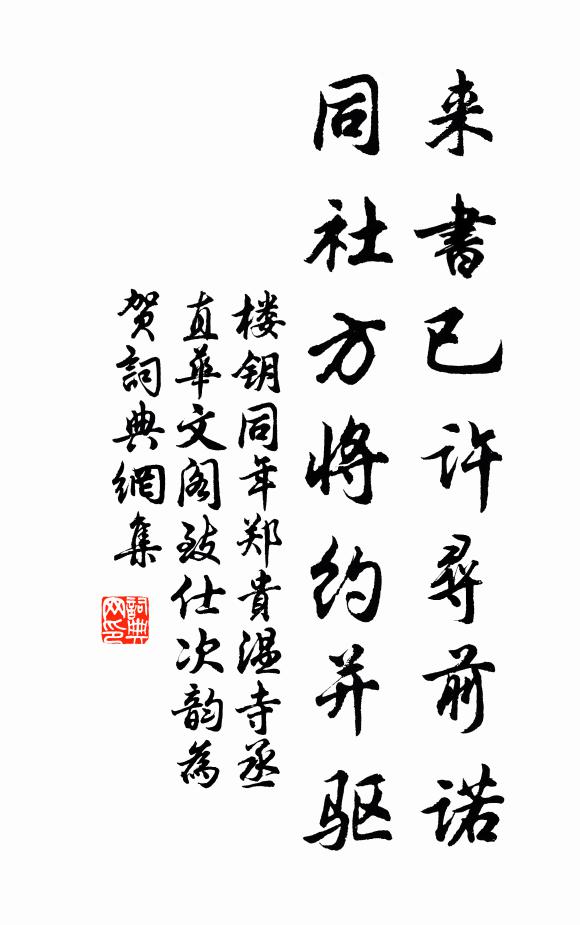 来書已许尋前诺
同社方將约并驱
楼钥同年郑貴温寺丞
直華文阁致仕次韵為
贺詞典網集
詞典
网印